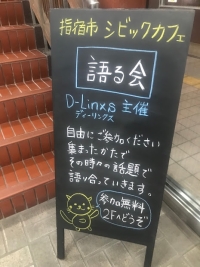 指宿市 シビックカフェ
語る会
D-Linxs 主催
ディーリンクス
自由にご参加ください
集まったかたで
その時々の話題で
語り合っていきます。
参加無料
2Fへどうぞ